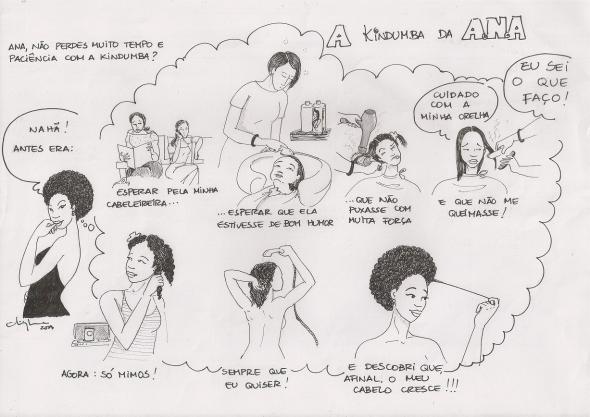 A KINDUMBA DA A.N.A
ANA, NÃO PERDES MUITO TEMPO E
PACIÊNCIA COM A KINDUMBA?
NAHÃ!
ANTES ERA:
ESPERAR PELA MINHA
CABELEIREIRA...
...ESPERAR QUE ELA
ESTIVESSE DE BOM HUMOR
...QUE NÃO
PUXASSE COM
MUITA FORÇA
CUIDADO
COM A
MINHA ORELHA
EU SEI
O QUE
FAÇO!
E QUE NÃO ME
QUEIMASSE!
AGORA: SÓ MIMOS!
SEMPRE QUE
EU QUISER!
E DESCOBRI QUE,
AFINAL, O MEU
CABELO CRESCE!!!